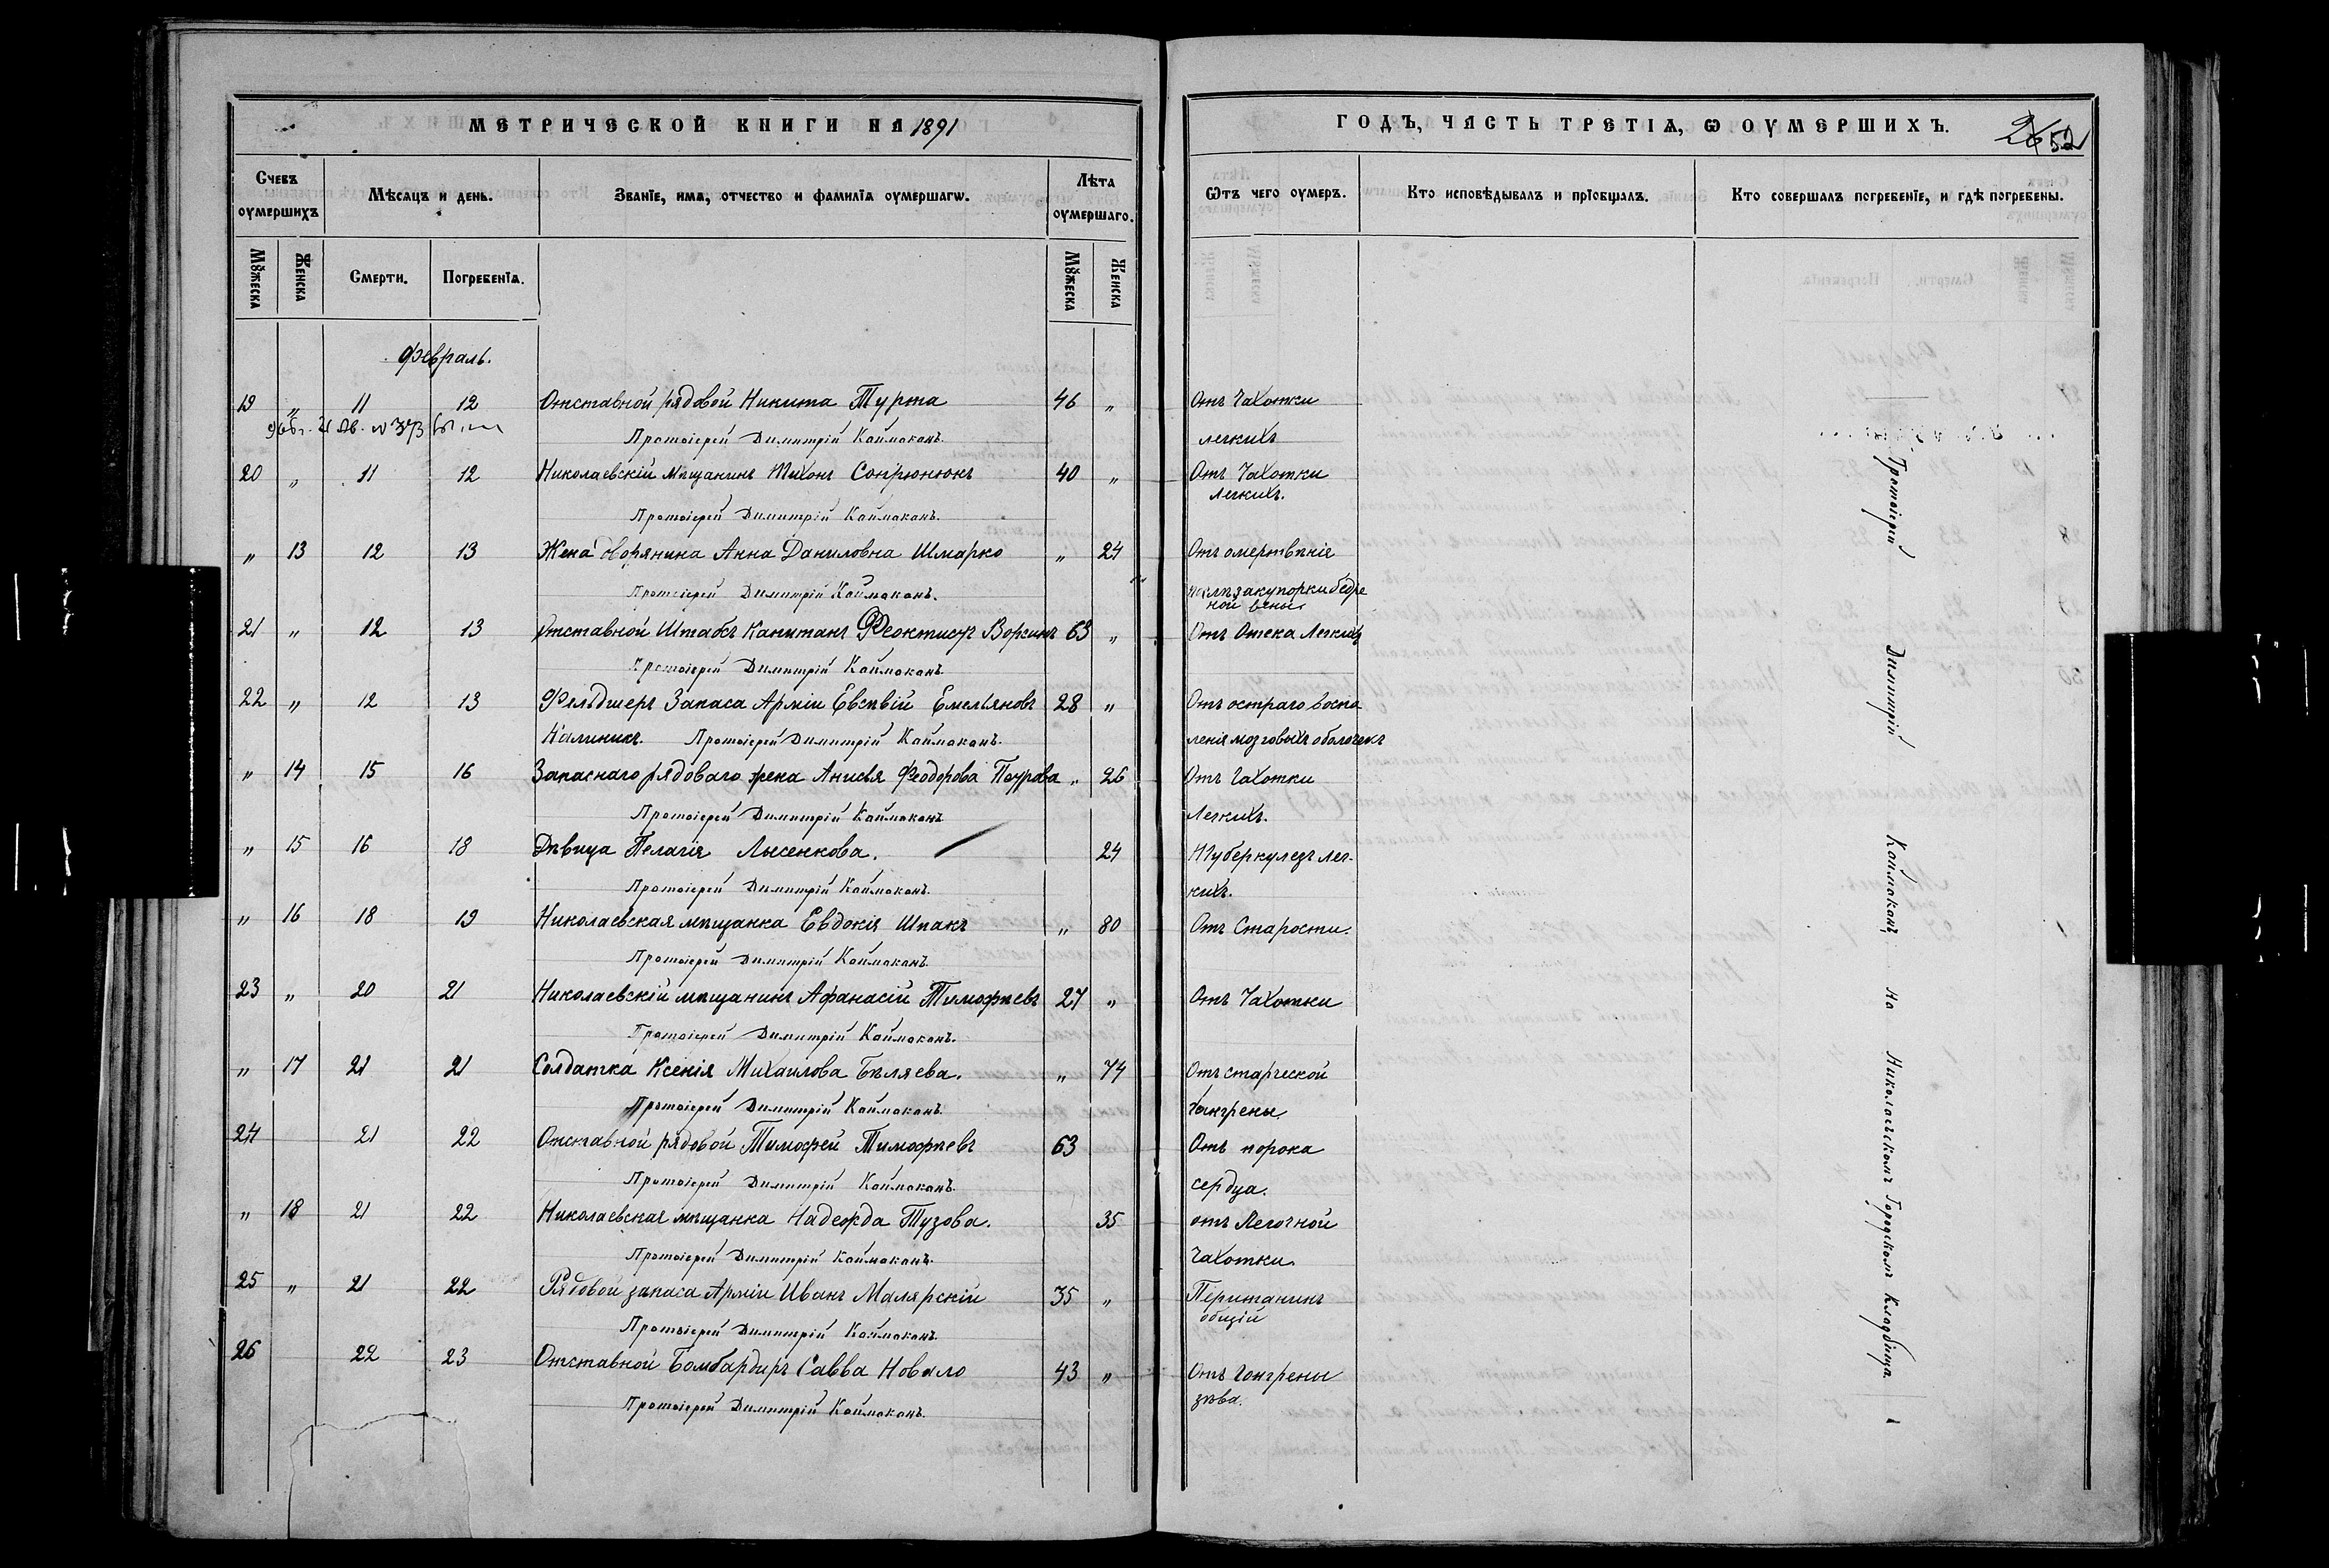 МЕТРИЧЕСКОЙ КНИГИ НА 1891
ГОДЪ, ЧАСТЬ ТРЕТІѦ, Ѡ ОУМЕРШИХЪ.
26 52
Счевъ оумершихъ
Мѣсѧцъ и день.
Званїе, имѧ, отчество и фамилїѧ оумершагѡ.
Лѣта оумершаго.
Ѿтъ чего оумеръ.
Кто исповѣдывалъ и прїобщалъ.
Кто совершалъ погребенїе, и гдѣ погребены.
Мꙋжеска
Женска
Смерти.
Погребенїѧ.
Мꙋжеска
Женска
Февраль.
19 " 11 12 Отставной рядовой Никита Турта 46 " Отъ Чахотки
№ 373
Протоіерей Димитрій Каймаканъ. легкихъ
20 " 11 12 Николаевскій мѣщанинъ Тихонъ Сопрюнюкъ 40 " Отъ Чахотки
легкихъ.
Протоіерей Димитрій Каймаканъ.
" 13 12 13 Жена дворянина Анна Даниловна Шмарко " 24 Отъ омертвѣнія
Протоіерей Димитрій Каймаканъ. закупорки бедре
ной вены
21 " 12 13 Отставной Штабсъ Капитанъ Феоктистъ Ворсинъ 63 " Отъ Отека Легкихъ
Протоіерей Димитрій Каймаканъ
22 " 12 13 Фельдшеръ Запаса Арміи Евсѣвій Емельяновъ 28 " Отъ остраго воспа
Калиникъ. Протоіерей Димитрій Каймаканъ. ленія мозговыхъ оболочекъ
" 14 15 16 Запаснаго рядоваго жена Анисья Феодорова Паурова " 26 Отъ Чахотки
Протоіерей Димитрій Каймаканъ Легкихъ.
" 15 16 18 Дѣвица Пелагія Лысенкова. 24 Туберкулезъ лег-
Протоіерей Димитрій Каймаканъ. кихъ.
" 16 18 19 Николаевская мѣщанка Евдокія Шпакъ " 80 Отъ Старости.
Протоіерей Димитрій Каймаканъ.
23 " 20 21 Николаевскій мѣщанинъ Афанасій Тимофѣевъ 27 " Отъ Чахотки
Протоіерей Димитрій Каймаканъ.
" 17 21 21 Солдатка Ксенія Михаилова Бѣляева. " 74 Отъ старческой
Протоіерей Димитрій Каймаканъ. гангрены.
24 21 22 Отставной рядовой Тимофей Тимофѣевъ 63 Отъ порока
Протоіерей Димитрій Каймаканъ. сердца.
" 18 21 22 Николаевская мѣщанка Надежда Тузова. 35 отъ Легочной
Протоіерей Димитрій Каймаканъ. Чахотки.
25 " 21 22 Рядовой запаса Арміи Иванъ Малярскій 35 " Пеританинъ
общій
Протоіерей Димитрій Каймаканъ.
26 22 23 Отставной Бомбардиръ Савва Новало 43 " Отъ Гангрены
зѣва.
Протоіерей Димитрій Каймаканъ.
Протоіерей Димитрій Каймаканъ, на Николаевскомъ Городскомъ Кладбища.